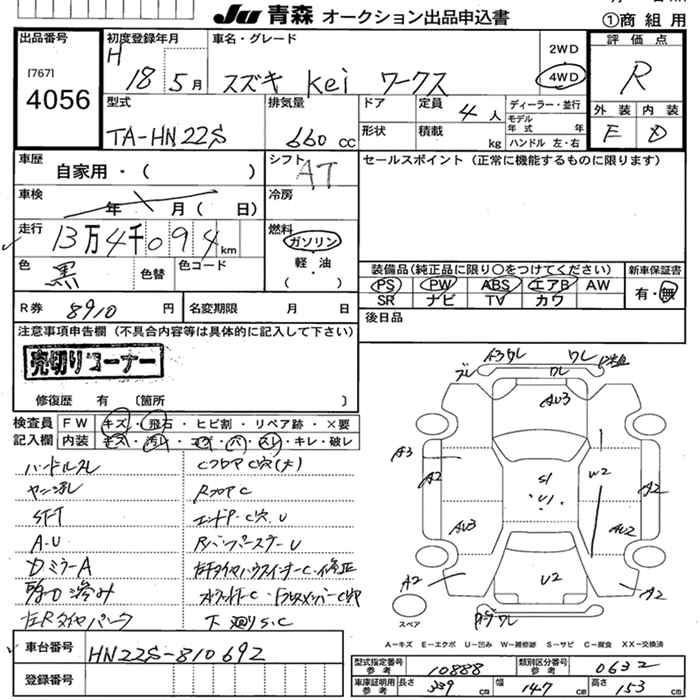 JU 青森 オークション出品申込書
①商組用
出品番号
[767]
4056
初度登録年月
H 18 5月
車名・グレード
スズキ Kei ワークス
2WD
4WD
評価点
R
外装 内装
F D
型式
TA-HN22S
排気量
660 cc
ドア
形状
定員 4人
積載 kg
ディーラー・並行
モデル年式 年
ハンドル 左・右
車歴
自家用・( )
シフト
AT
セールスポイント(正常に機能するものに限ります)
車検
年 月( 日)
冷房
走行
13万4千094km
燃料
ガソリン
軽・油
( )
色
黒
色替
色コード
装備品(純正品に限り○をつけてください)
新車保証書
PS PW ABS エアB AW
SR ナビ TV カワ
有・無
R券 8910 円
名変期限 月 日
後日品
注意事項申告欄(不具合内容等は具体的に記入して下さい)
売切りコーナー
修復歴 有 〔箇所 〕
検査員記入欄
FW キズ・飛石・ヒビ割・リペア跡・×要
内装 キズ・汚レ・コゲ・穴・スレ・キレ・破レ
ハンドルスレ
SFT
A・U
DミラーA
CフロアC穴(大)
RフロアC
エンドP・C穴、U
下廻りS・C
A3ワレ
ワレ
ワレ
AU3
A3
A2
S1
U1
W2
A2
AU3
AU2
A2
U2
A2
スペア
A−キズ E−エクボ U−凹み W−補修跡 S−サビ C−腐食 XX−交換済
車台番号
HN22S-810692
登録番号
型式指定番号 参考
10888
類別区分番号 参考
0632
車庫証明用 参考
長さ 339 cm
幅 147 cm
高さ 153 cm